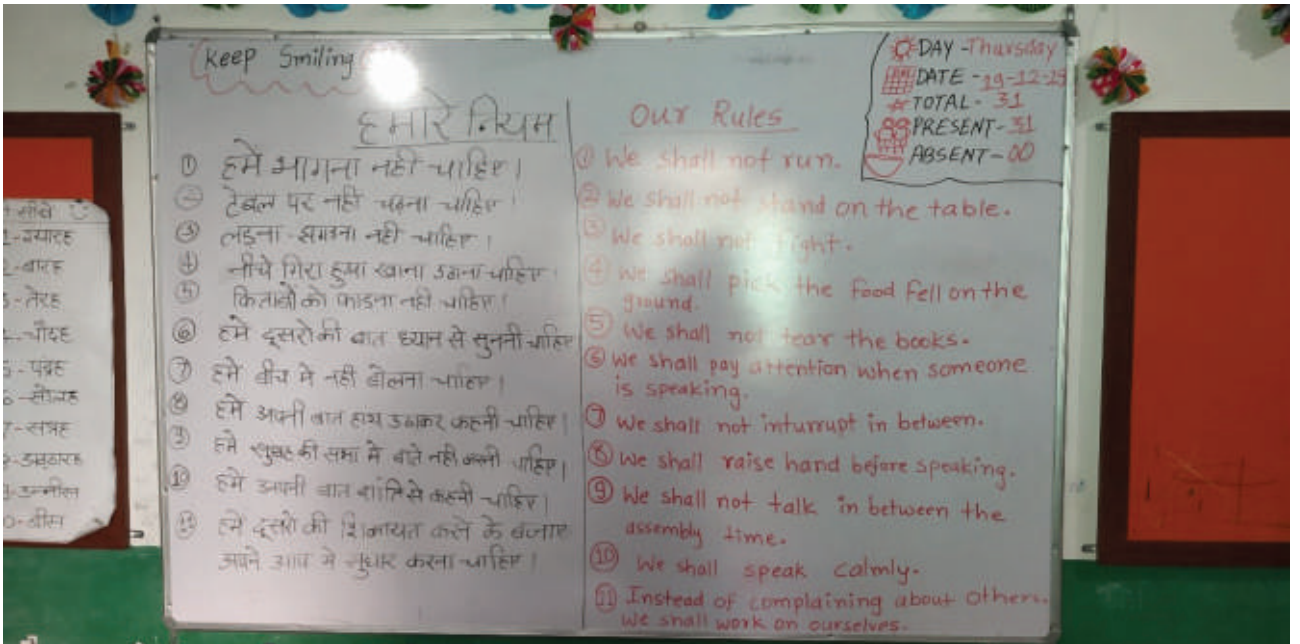 Keep Smiling
DAY - Thursday
DATE - 19-12-19
TOTAL - 31
PRESENT - 31
ABSENT - 00
हमारे नियम
① हमे भागना नही चाहिए।
② टेबल पर नही चढना चाहिए।
③ लड़ना - झगडना नही चाहिए।
④ नीचे गिरा हुआ खाना उठाना चाहिए।
⑤ किताबों को फाडना नही चाहिए।
⑥ हमे दूसरो की बात ध्यान से सुननी चाहिए
⑦ हमे बीच मे नही बोलना चाहिए।
⑧ हमे अपनी बात हाथ उठाकर कहनी चाहिए।
⑨ हमे सुबह की सभा मे बाते नही करनी चाहिए।
⑩ हमे अपनी बात शांति से कहनी चाहिए।
⑪ हमे दूसरो की शिकायत करने के बजाए
अपने आप मे सुधार करना चाहिए।
Our Rules
① We shall not run.
② We shall not stand on the table.
③ We shall not fight.
④ We shall pick the food fell on the
ground.
⑤ We shall not tear the books.
⑥ We shall pay attention when someone
is speaking.
⑦ We shall not inturrupt in between.
⑧ We shall raise hand before speaking.
⑨ We shall not talk in between the
assembly time.
⑩ We shall speak calmly.
⑪ Instead of complaining about others.
We shall work on ourselves.
सीखे
ग्यारह
बारह
तेरह
चौदह
पंद्रह
सोलह
सत्रह
अठारह
उन्नीस
बीस